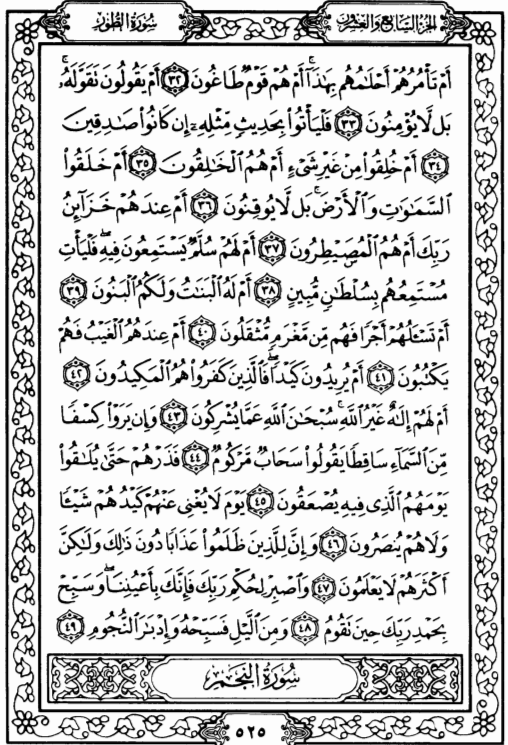 سُورَةُ الطُّورِ
الجُزءُ السَّابِعُ وَالعِشرُونَ
أَمۡ تَأۡمُرُهُمۡ أَحۡلَٰمُهُم بِهَٰذَآۚ أَمۡ هُمۡ قَوۡمٞ طَاغُونَ ٣٢ أَمۡ يَقُولُونَ تَقَوَّلَهُۥۚ
بَل لَّا يُؤۡمِنُونَ ٣٣ فَلۡيَأۡتُواْ بِحَدِيثٖ مِّثۡلِهِۦٓ إِن كَانُواْ صَٰدِقِينَ
٣٤ أَمۡ خُلِقُواْ مِنۡ غَيۡرِ شَيۡءٍ أَمۡ هُمُ ٱلۡخَٰلِقُونَ ٣٥ أَمۡ خَلَقُواْ
ٱلسَّمَٰوَٰتِ وَٱلۡأَرۡضَۚ بَل لَّا يُوقِنُونَ ٣٦ أَمۡ عِندَهُمۡ خَزَآئِنُ
رَبِّكَ أَمۡ هُمُ ٱلۡمُصَۜيۡطِرُونَ ٣٧ أَمۡ لَهُمۡ سُلَّمٞ يَسۡتَمِعُونَ فِيهِۖ فَلۡيَأۡتِ
مُسۡتَمِعُهُم بِسُلۡطَٰنٖ مُّبِينٍ ٣٨ أَمۡ لَهُ ٱلۡبَنَٰتُ وَلَكُمُ ٱلۡبَنُونَ ٣٩
أَمۡ تَسۡـَٔلُهُمۡ أَجۡرٗا فَهُم مِّن مَّغۡرَمٖ مُّثۡقَلُونَ ٤٠ أَمۡ عِندَهُمُ ٱلۡغَيۡبُ فَهُمۡ
يَكۡتُبُونَ ٤١ أَمۡ يُرِيدُونَ كَيۡدٗاۖ فَٱلَّذِينَ كَفَرُواْ هُمُ ٱلۡمَكِيدُونَ ٤٢
أَمۡ لَهُمۡ إِلَٰهٌ غَيۡرُ ٱللَّهِۚ سُبۡحَٰنَ ٱللَّهِ عَمَّا يُشۡرِكُونَ ٤٣ وَإِن يَرَوۡاْ كِسۡفٗا
مِّنَ ٱلسَّمَآءِ سَاقِطٗا يَقُولُواْ سَحَابٞ مَّرۡكُومٞ ٤٤ فَذَرۡهُمۡ حَتَّىٰ يُلَٰقُواْ
يَوۡمَهُمُ ٱلَّذِي فِيهِ يُصۡعَقُونَ ٤٥ يَوۡمَ لَا يُغۡنِي عَنۡهُمۡ كَيۡدُهُمۡ شَيۡـٔٗا
وَلَا هُمۡ يُنصَرُونَ ٤٦ وَإِنَّ لِلَّذِينَ ظَلَمُواْ عَذَابٗا دُونَ ذَٰلِكَ وَلَٰكِنَّ
أَكۡثَرَهُمۡ لَا يَعۡلَمُونَ ٤٧ وَٱصۡبِرۡ لِحُكۡمِ رَبِّكَ فَإِنَّكَ بِأَعۡيُنِنَاۖ وَسَبِّحۡ
بِحَمۡدِ رَبِّكَ حِينَ تَقُومُ ٤٨ وَمِنَ ٱلَّيۡلِ فَسَبِّحۡهُ وَإِدۡبَٰرَ ٱلنُّجُومِ ٤٩
سُورَةُ النَّجۡمِ
٥٢٥